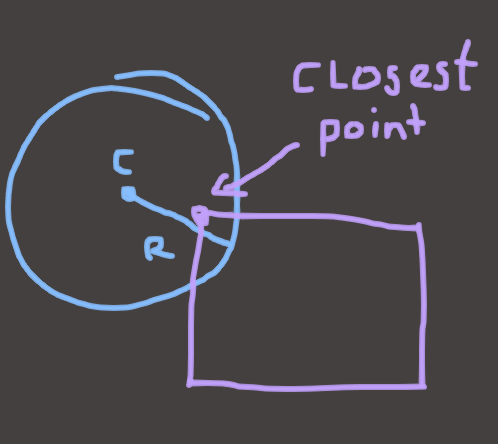 CLosest
point
C
R